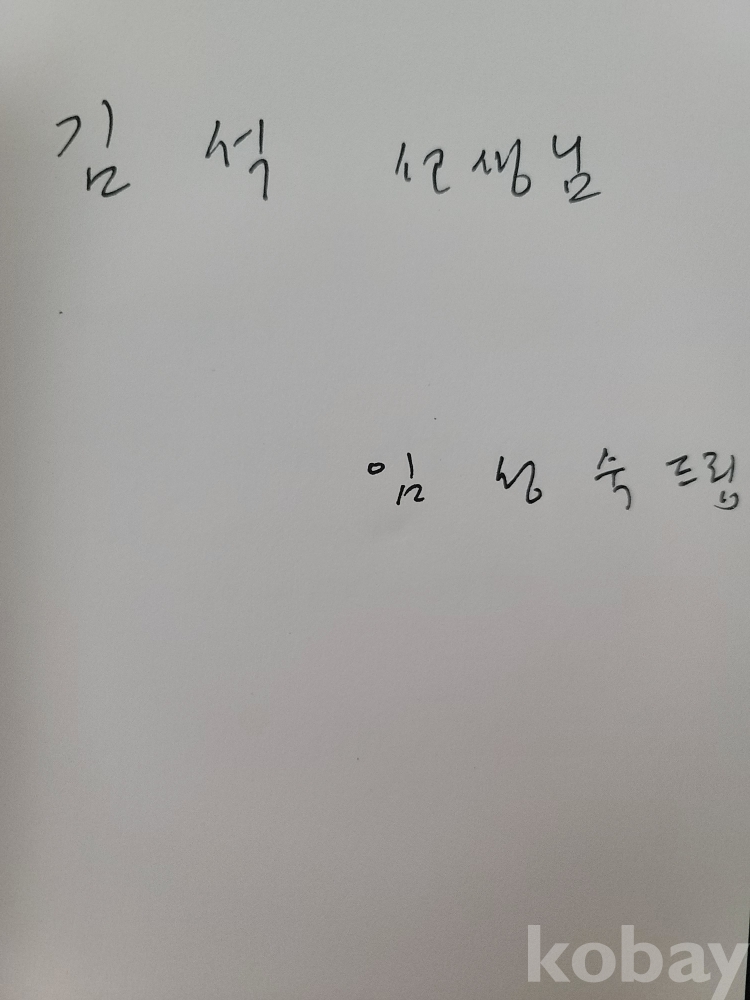 김 석 선생님
임 성 숙 드림
kobay